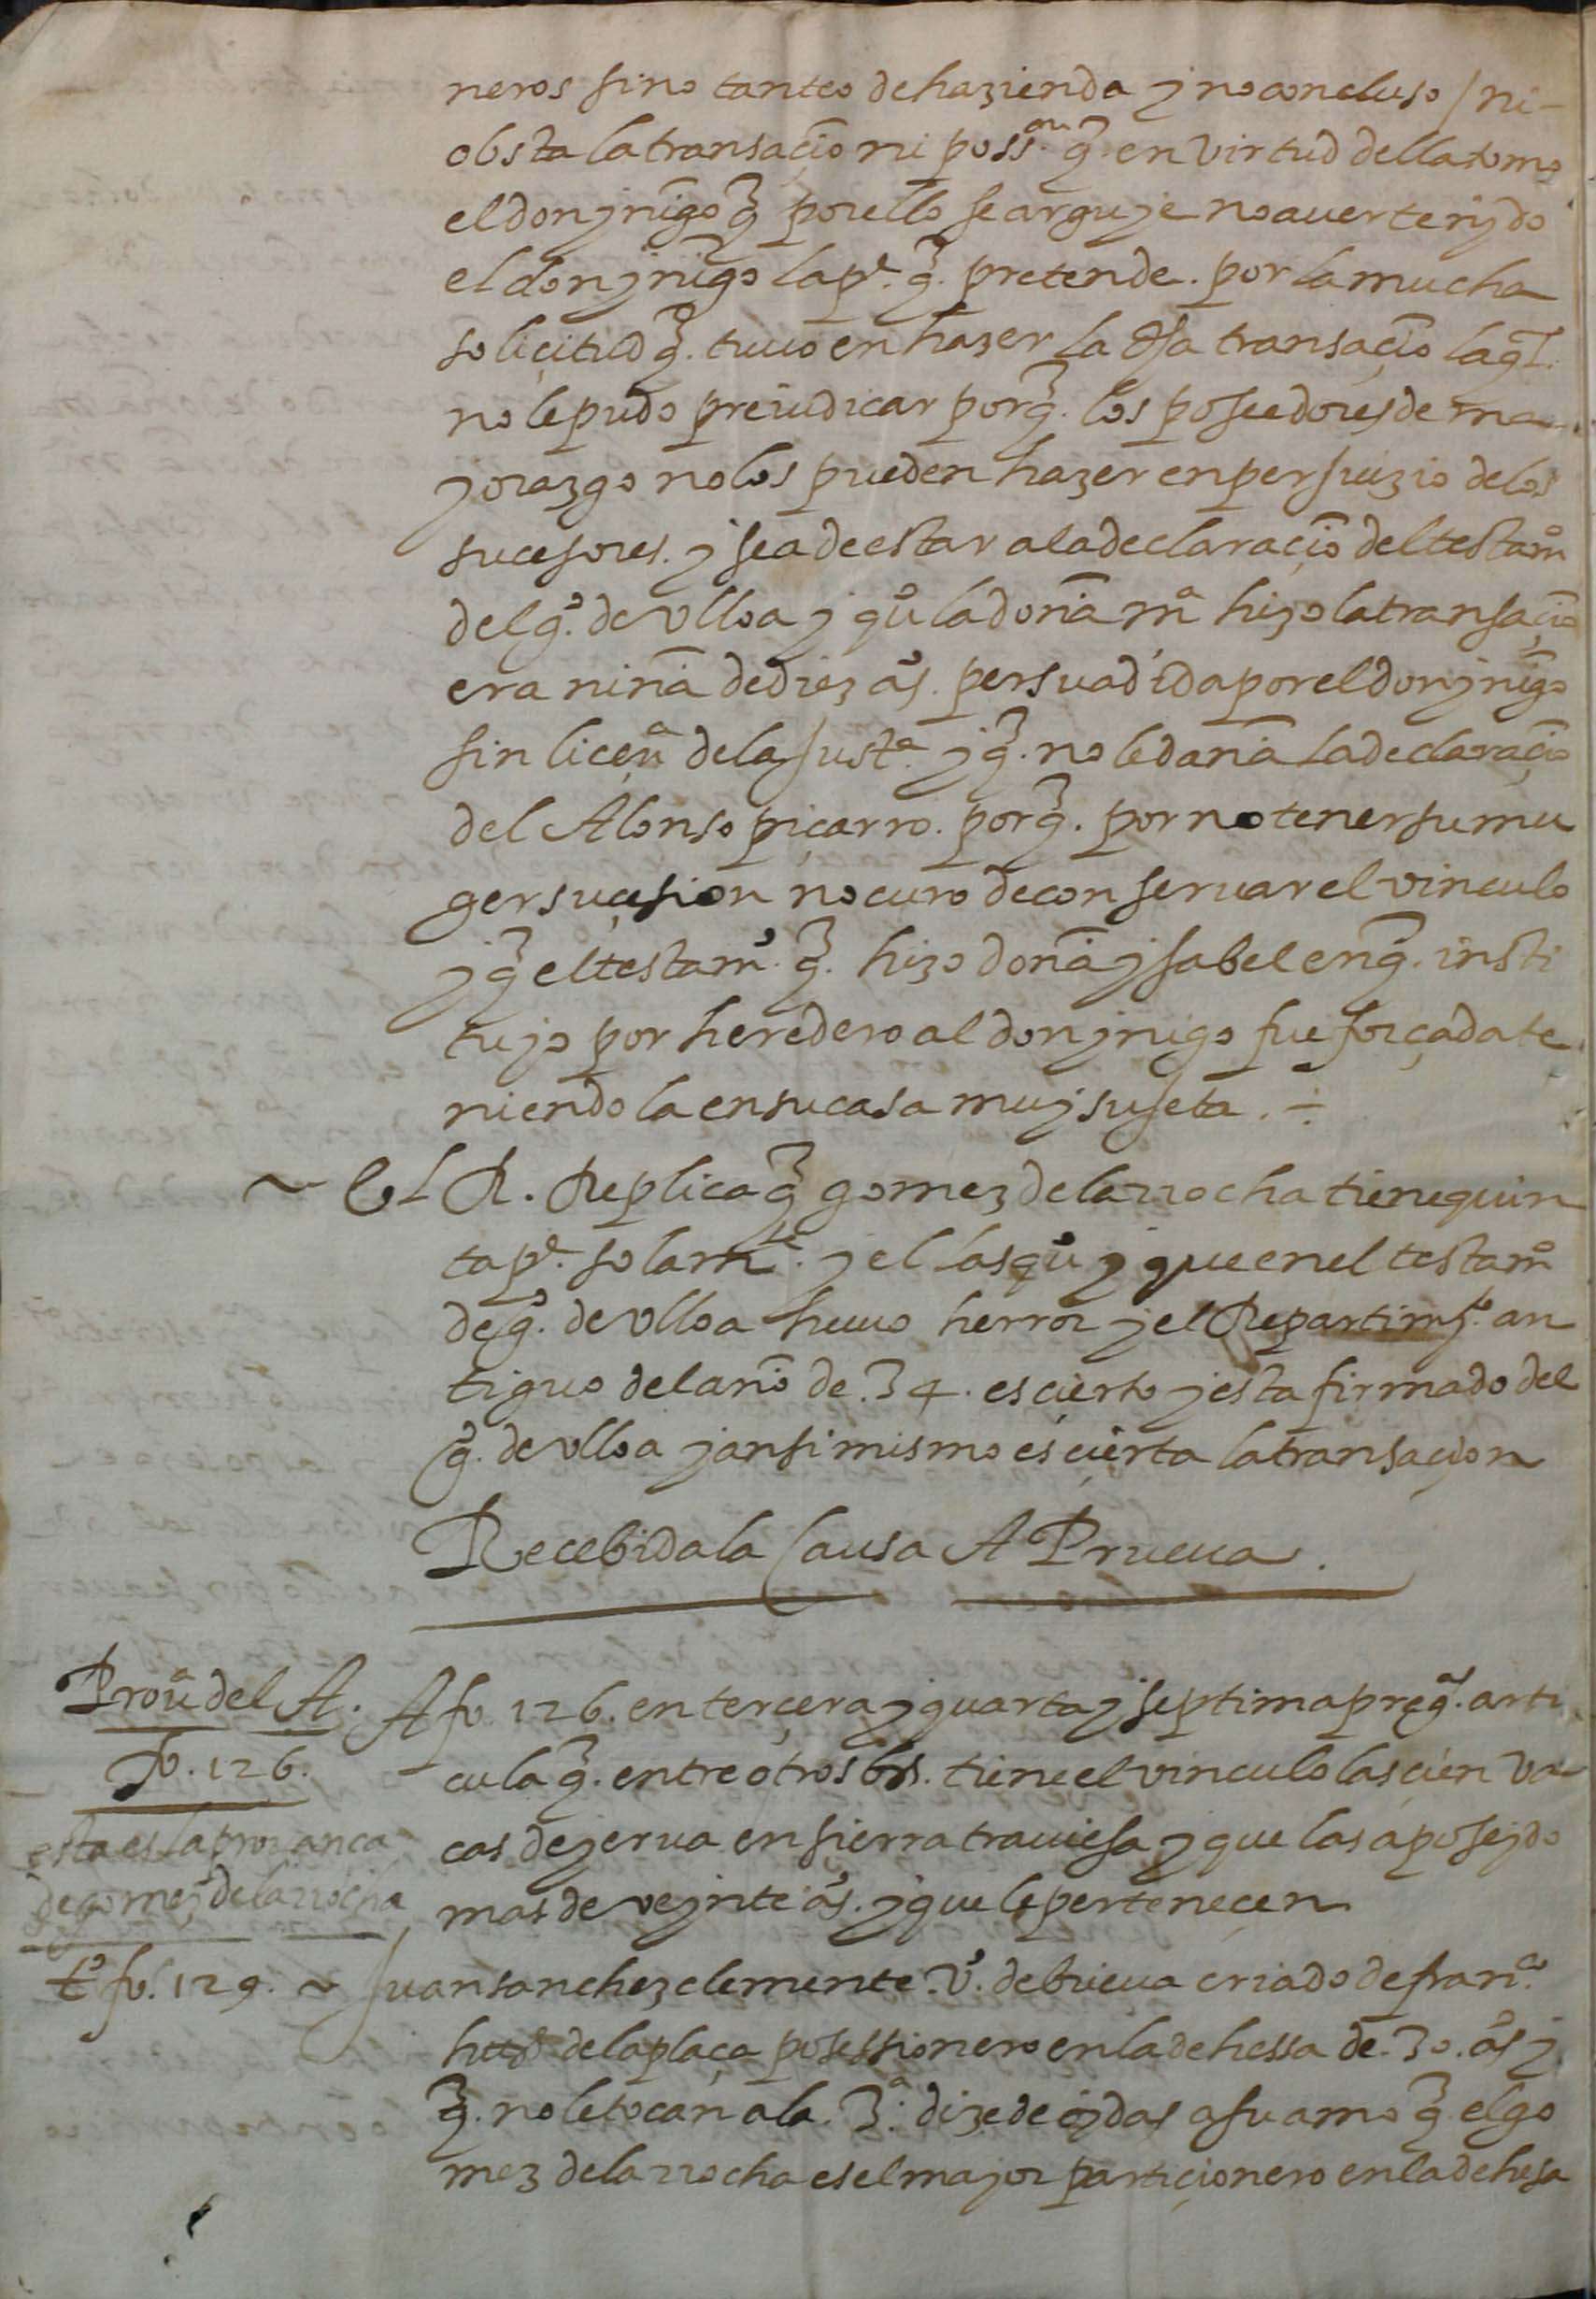 neros sino tanteo de hazienda y no concluso / ni
obsta la transaçiõ ni poss.on q̃. en virtud della tomo
el don ynĩgo q̃ por ello se arguye no auer tenydo
el don ynĩgo la pe. q̃. pretende. por la mucha
soliçitud q̃. tuuo en hazer la dha transaçiõ la ql̃.
no le pudo preiudicar porq̃. los poseedores de ma
yorazgo no los pueden hazer en perjuizio de los
sucesores. y sea de estar a la declaraçiõ del testamo
del go. de Ulloa y qdo la doña ma hizo la transaçiõ
era niña de diez as. persuadida por el don ynĩgo
sin liçena de la Justa. y q̃. no le daña la declaraçiõ
del Alonso piçarro. porq̃. por no tener su mu
ger suçesion no curo de conseruar el vinculo
y q̃ el testamo. q̃. hizo doña ysabel en q̃. insti
tuyo por heredero al don ynigo fue forçada te
niendola en su casa muy sujeta. ÷
~ El R. Replica q̃ gomez de la rrocha tiene quin
ta pe. solamte. y el las quo y que en el testamo
de go. de Ulloa huuo herror y el Repartimyo. an
tiguo del año de. 34. es çierto y esta firmado del
go. de Ulloa y ansi mismo es çierta la transaçion
Recebida la Causa A Prueua.
Proua del A.
fo. 126.
esta es la prouança
de gomez de la rrocha
A fo. 126. en terçera y quarta y septima prega. arti
cula q̃. entre otros bs. tiene el vinculo las çien va
cas de yerua en sierra trauiesa y que las a poseydo
mas de veynte as. y que le perteneçen
to fo. 129. ~ Juan sanchez clemente. vo. de brieua criado de franco.
hurdo de la plaça posessionero en la dehessa de. 30. as y
q̃. no le tocan a la. 3a. dize de oydas a su amo q̃ el go
mez de la rrocha es el mayor partiçionero en la dehesa